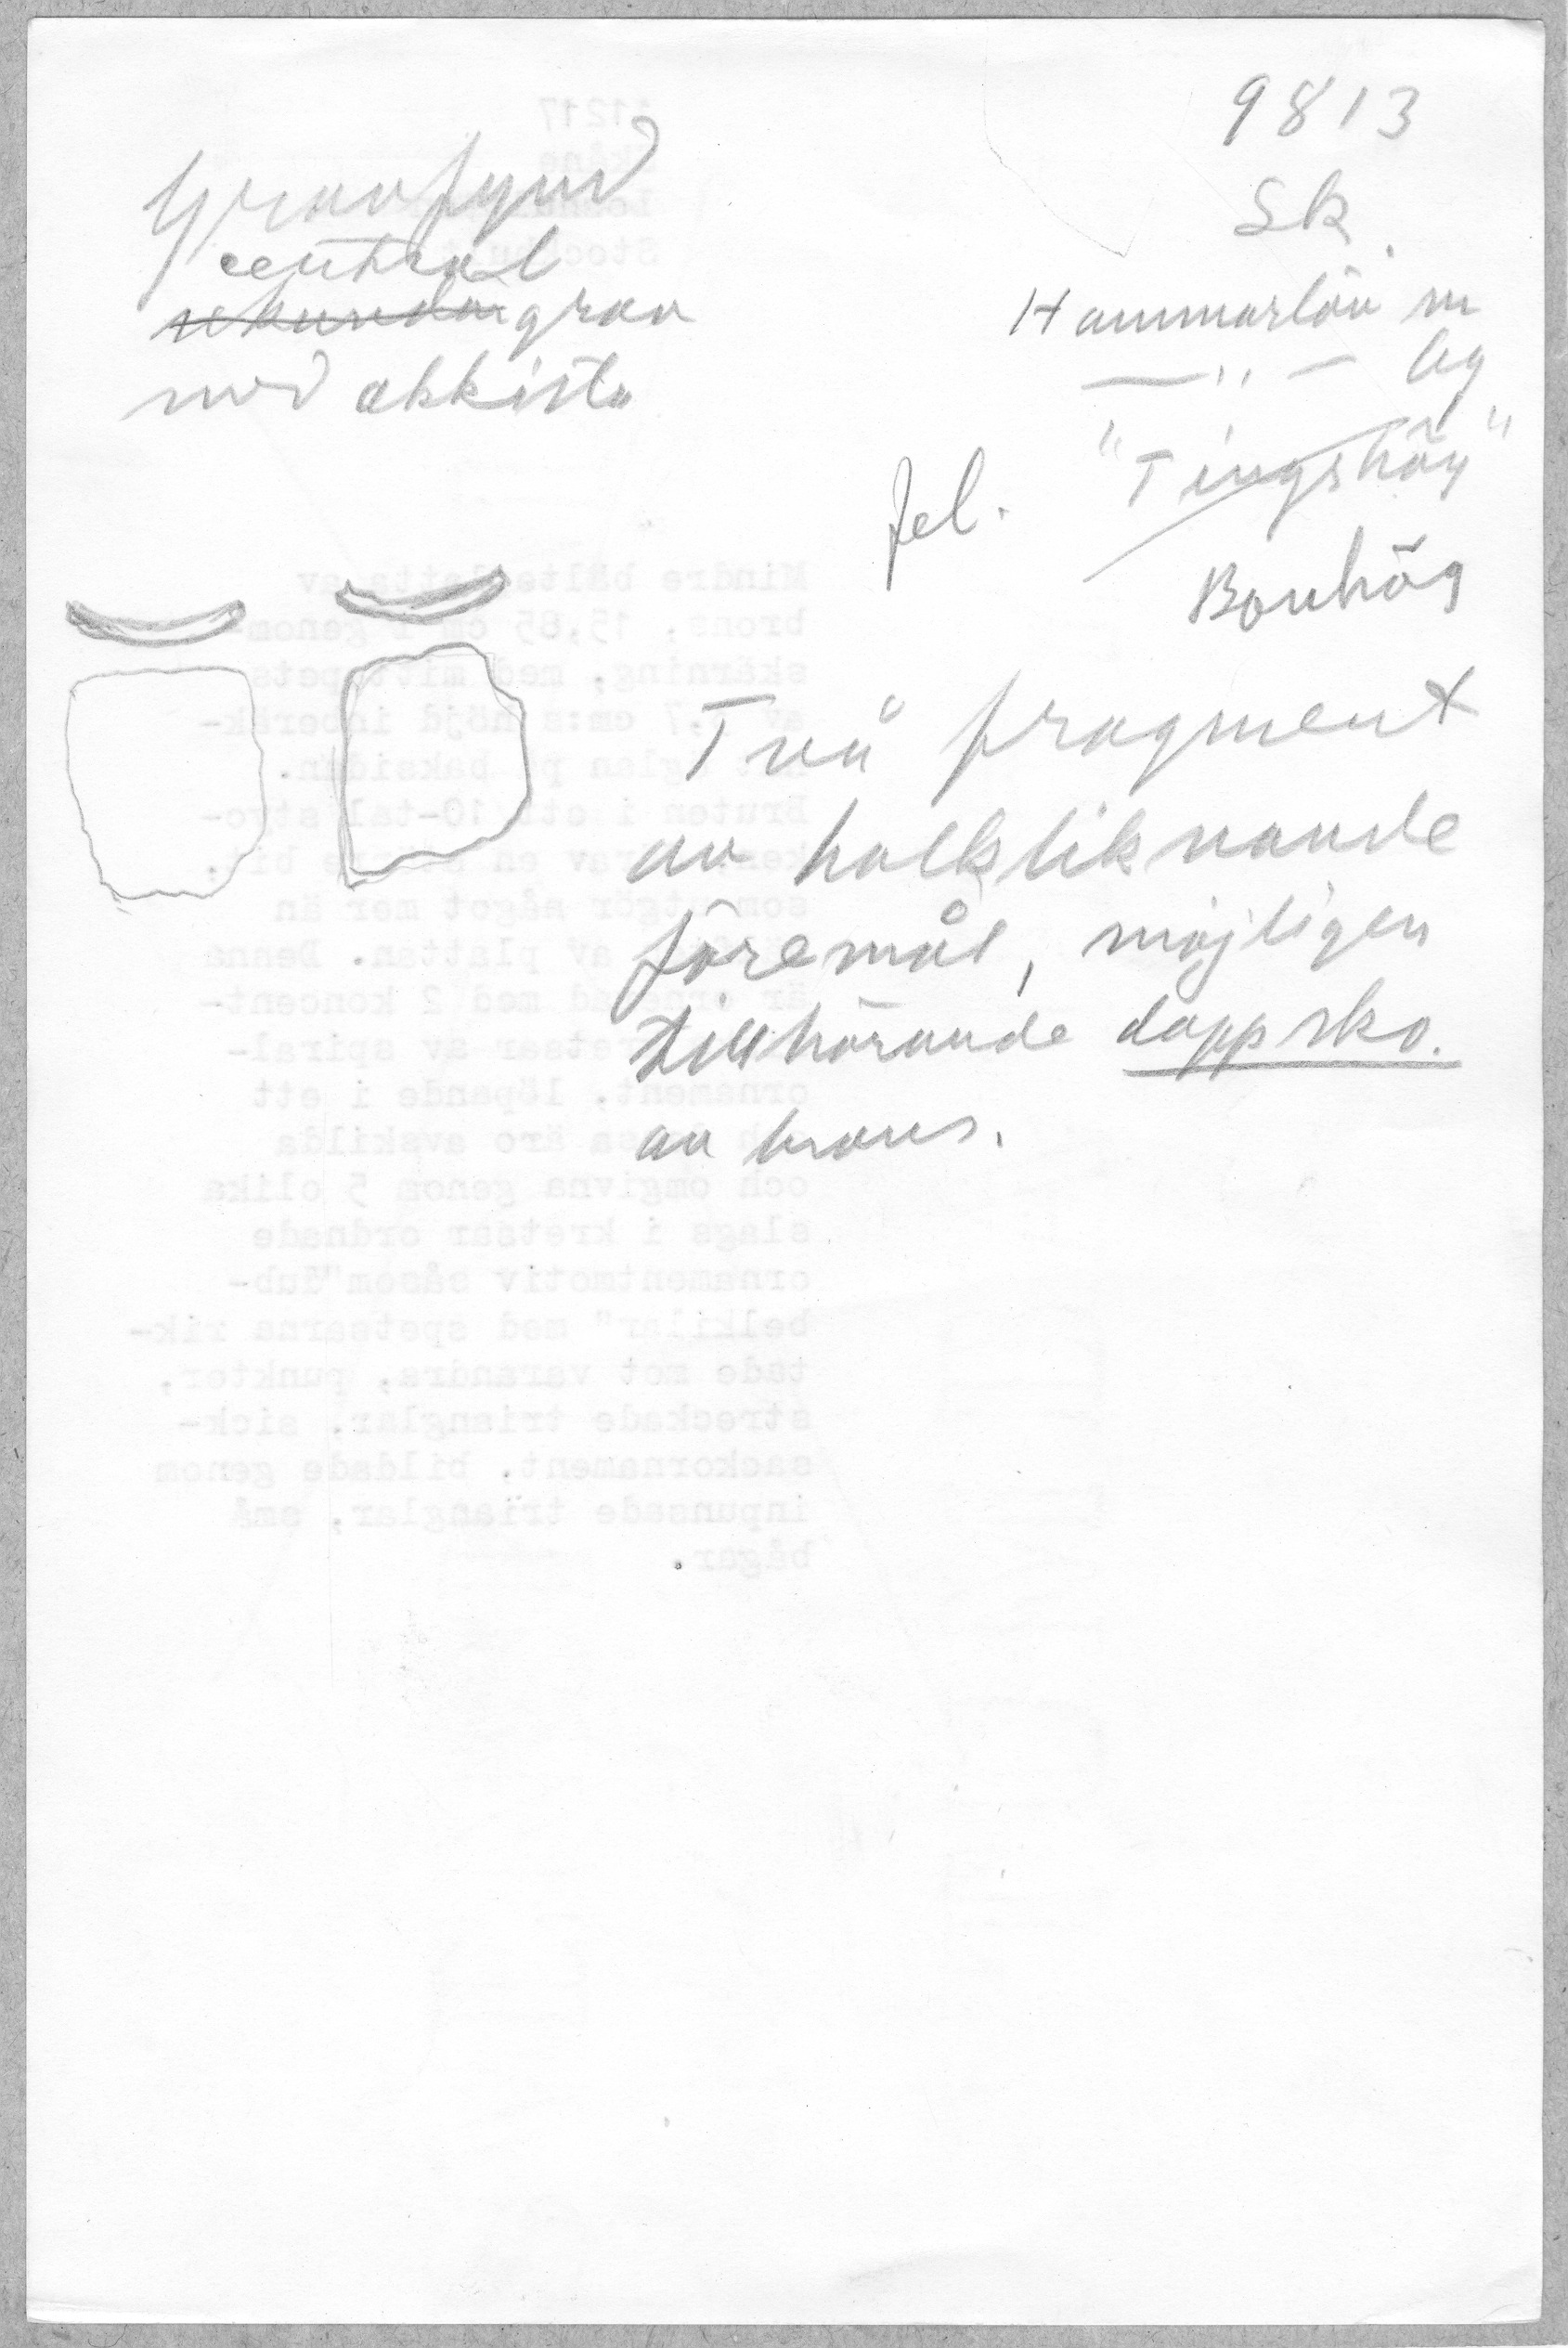 9813
Sk.
Gravfynd
central
sekundärgrav
med ekkista
Hammarlöv sn
— " — by
fel. "Tingshög"
Bonhög
Två fragment
av holkliknande
föremål, möjligen
tillhörande doppsko.
av brons.